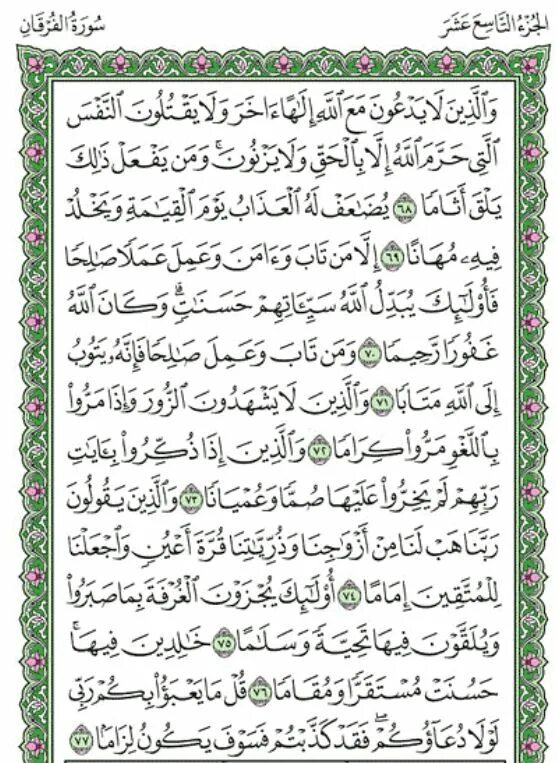 الجُزْءُ التَّاسِعَ عَشَرَ
سُورَةُ الفُرْقَانِ
وَٱلَّذِينَ لَا يَدْعُونَ مَعَ ٱللَّهِ إِلَٰهًا ءَاخَرَ وَلَا يَقْتُلُونَ ٱلنَّفْسَ
ٱلَّتِي حَرَّمَ ٱللَّهُ إِلَّا بِٱلْحَقِّ وَلَا يَزْنُونَۚ وَمَن يَفْعَلْ ذَٰلِكَ
يَلْقَ أَثَامًا ٦٨ يُضَٰعَفْ لَهُ ٱلْعَذَابُ يَوْمَ ٱلْقِيَٰمَةِ وَيَخْلُدْ
فِيهِۦ مُهَانًا ٦٩ إِلَّا مَن تَابَ وَءَامَنَ وَعَمِلَ عَمَلًا صَٰلِحًا
فَأُو۟لَٰٓئِكَ يُبَدِّلُ ٱللَّهُ سَيِّـَٔاتِهِمْ حَسَنَٰتٍۗ وَكَانَ ٱللَّهُ
غَفُورًا رَّحِيمًا ٧٠ وَمَن تَابَ وَعَمِلَ صَٰلِحًا فَإِنَّهُۥ يَتُوبُ
إِلَى ٱللَّهِ مَتَابًا ٧١ وَٱلَّذِينَ لَا يَشْهَدُونَ ٱلزُّورَ وَإِذَا مَرُّوا۟
بِٱللَّغْوِ مَرُّوا۟ كِرَامًا ٧٢ وَٱلَّذِينَ إِذَا ذُكِّرُوا۟ بِـَٔايَٰتِ
رَبِّهِمْ لَمْ يَخِرُّوا۟ عَلَيْهَا صُمًّا وَعُمْيَانًا ٧٣ وَٱلَّذِينَ يَقُولُونَ
رَبَّنَا هَبْ لَنَا مِنْ أَزْوَٰجِنَا وَذُرِّيَّٰتِنَا قُرَّةَ أَعْيُنٍ وَٱجْعَلْنَا
لِلْمُتَّقِينَ إِمَامًا ٧٤ أُو۟لَٰٓئِكَ يُجْزَوْنَ ٱلْغُرْفَةَ بِمَا صَبَرُوا۟
وَيُلَقَّوْنَ فِيهَا تَحِيَّةً وَسَلَٰمًا ٧٥ خَٰلِدِينَ فِيهَاۚ
حَسُنَتْ مُسْتَقَرًّا وَمُقَامًا ٧٦ قُلْ مَا يَعْبَؤُا۟ بِكُمْ رَبِّي
لَوْلَا دُعَآؤُكُمْۖ فَقَدْ كَذَّبْتُمْ فَسَوْفَ يَكُونُ لِزَامًۢا ٧٧